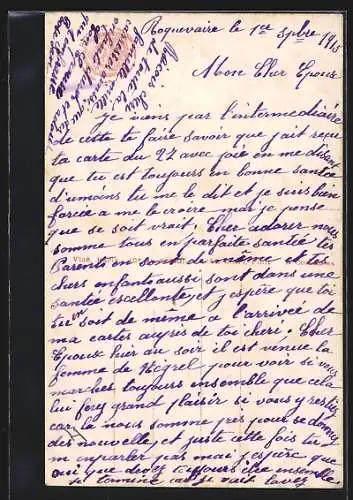 Roquevaire le 1er 7bre 1915
Mon Cher Epoux
Je viens par l'intermediaire
de cette te faire savoir que jait reçu
ta carte du 27 avec joie en me disent
que tu est toujours en bonne santée
d'umoins tu me le dit et je suis bien
forcée a me le croire mai je pense
que se soit vrait, Cher adorer nous
somme tous en parfaite santée tes
Parents en sont de même et tes
chers enfants aussi sont dans une
santée excellente, et j'espère que toi
tu soit de même a l'arrivée de
ma cartes auprès de toi cheri. Cher
Epoux hier au soir il est venue la
femme de Négrel pour voir si vous
marchez toujours ensemble que cela
lui ferez grand plaisir si vous y restiez
car la nous somme près pour se donner
des nouvelle, et juste cette fois tu
m'enparler pas mai j'espère que
oui que devez toujours être ensemble
je termine car